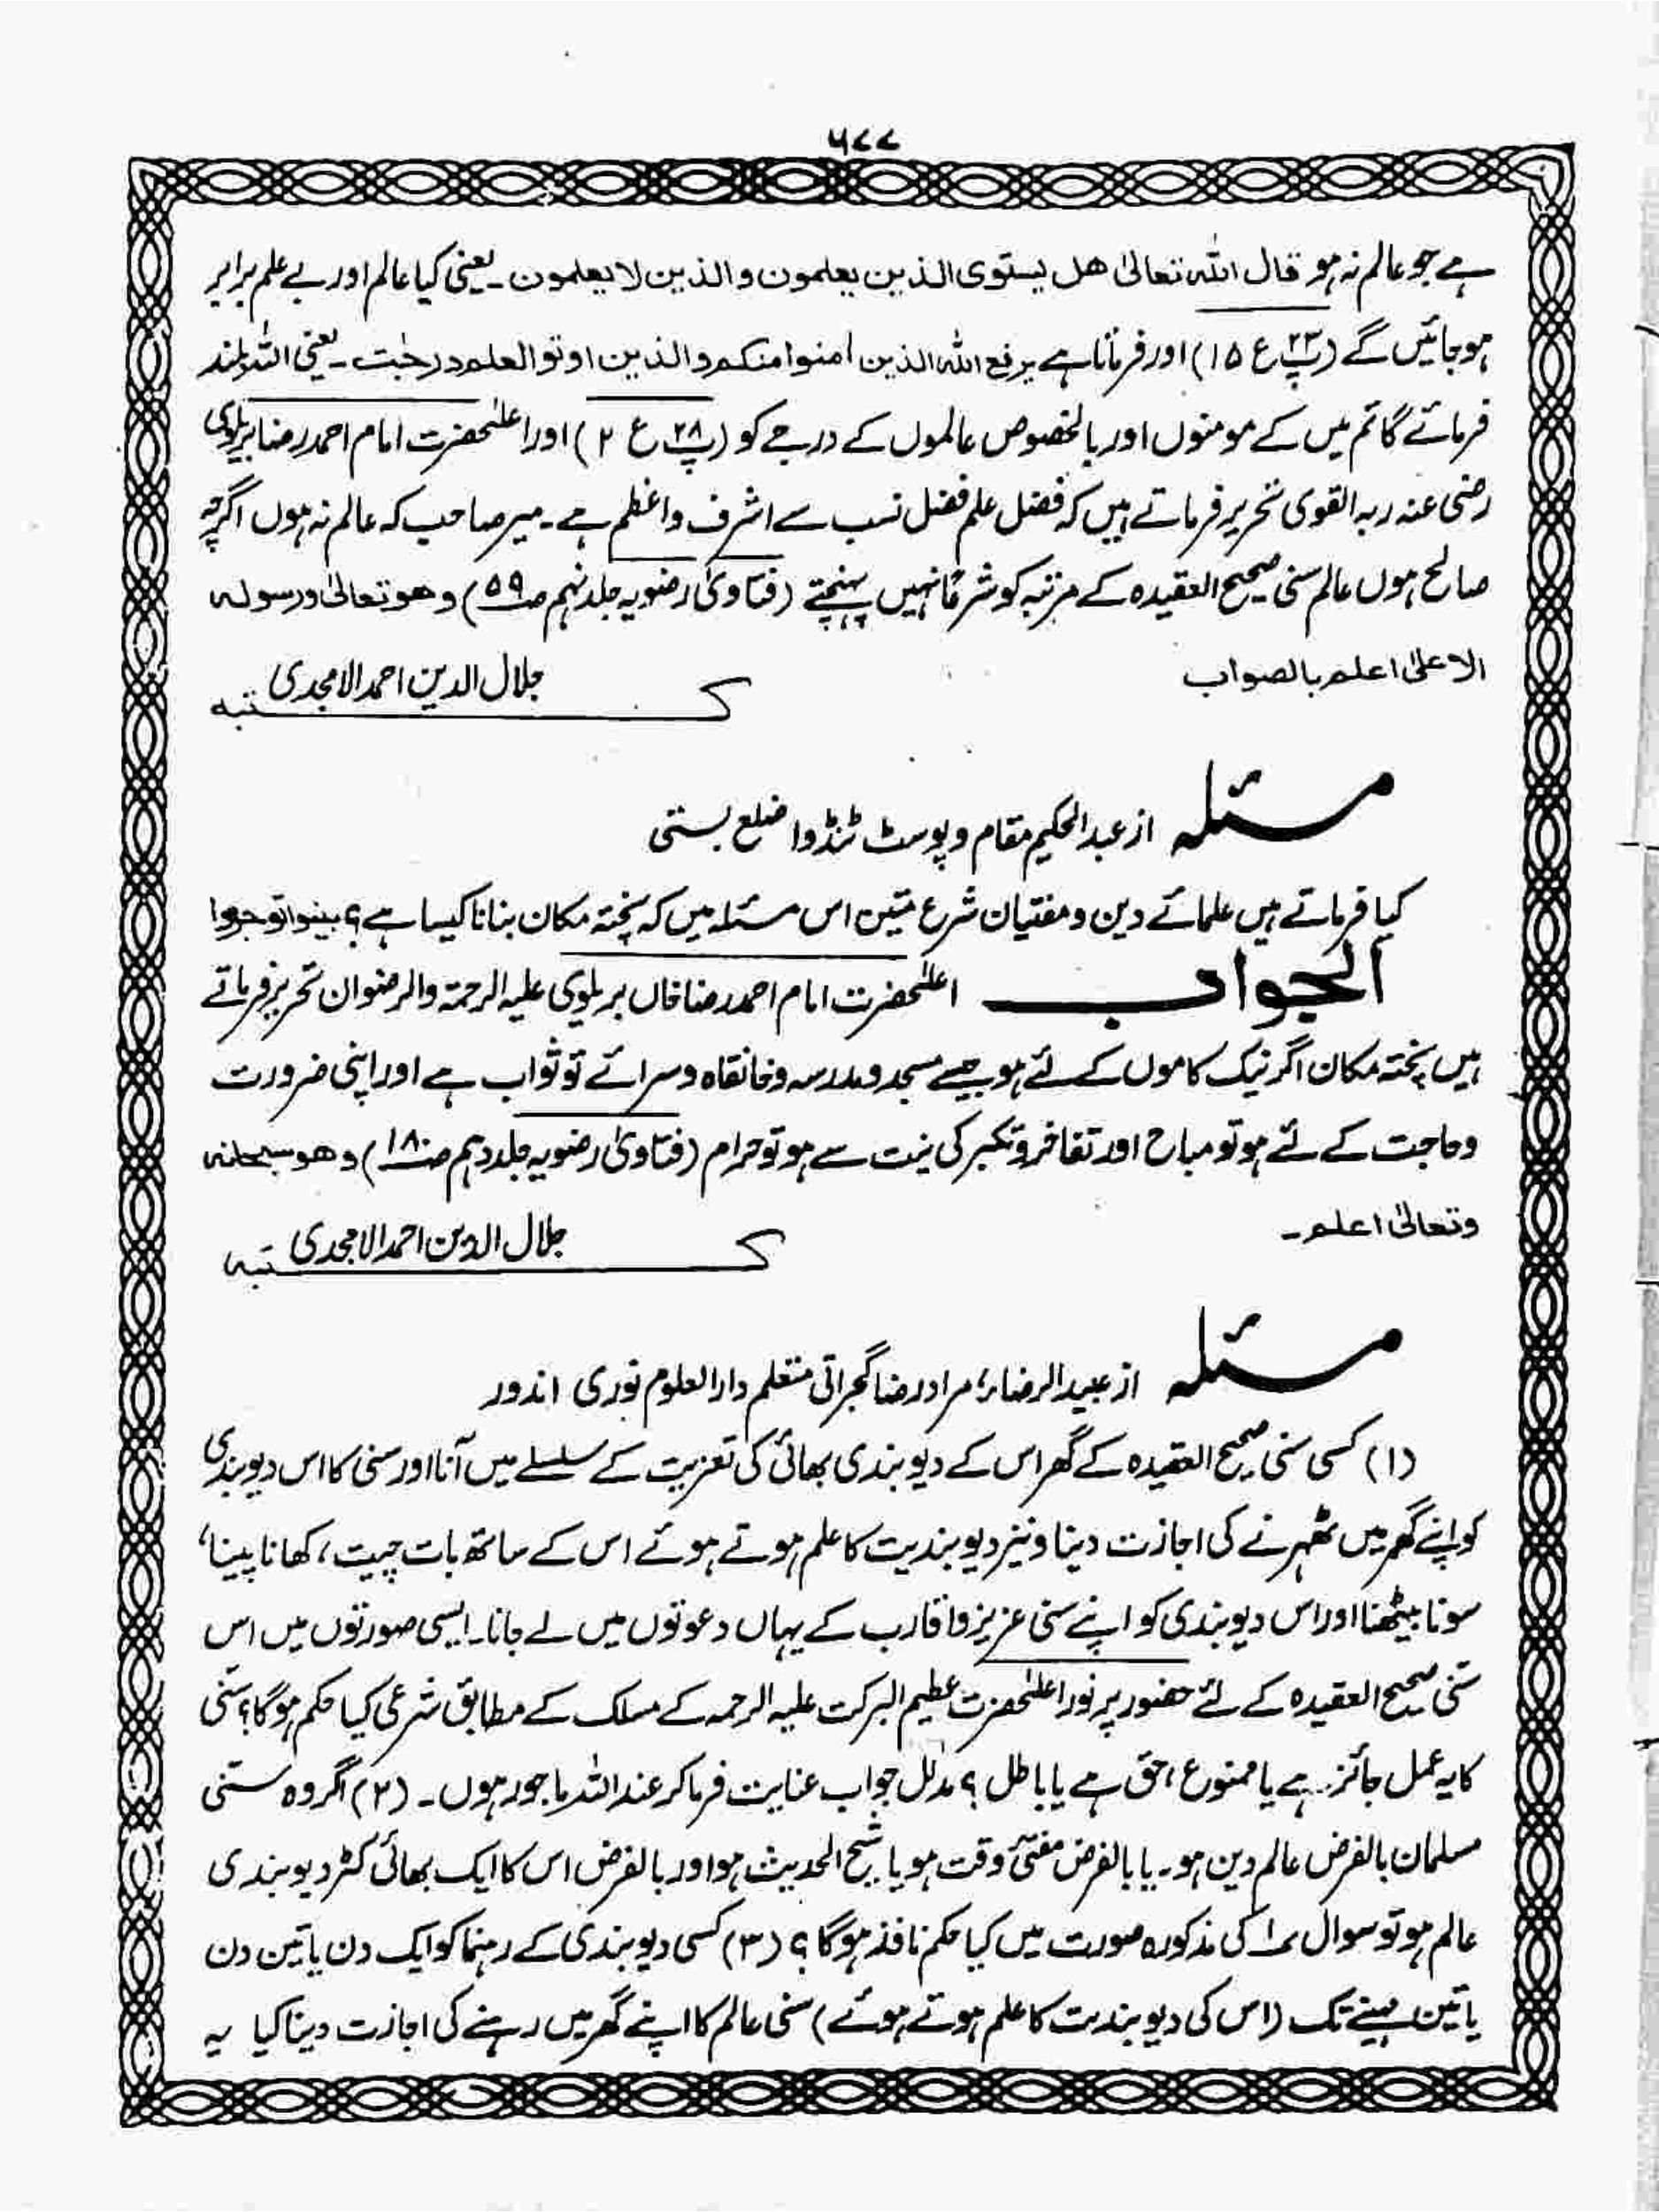 ۵۷۷
ہے جو عالم نہ ہو قال اللہ تعالیٰ ھل یستوی الذین یعلمون والذین لا یعلمون ۔ یعنی کیا عالم اور بے علم برابر
ہوجائیں گے (پ۲۳ ع ۱۵) اور فرماتا ہے یرفع اللہ الذین اٰمنوا منکم والذین اوتوا العلم درجٰت ۔ یعنی اللہ بلند
فرمائے گا تم میں کے مومنوں اور بالخصوص عالموں کے درجے کو (پ۲۸ ع ۲) اور اعلیٰحضرت امام احمد رضا بریلوی
رضی عنہ ربہ القوی تحریر فرماتے ہیں کہ فضل علم فضل نسب سے اشرف واعظم ہے ۔ میر صاحب کہ عالم نہ ہوں اگرچہ
صالح ہوں عالم سنی صحیح العقیدہ کے مرتبہ کو شرعًا نہیں پہنچتے (فتاویٰ رضویہ جلد نہم ص۵۹) وھو تعالیٰ ورسولہ
الاعلیٰ اعلم بالصواب
کتبہ جلال الدین احمد الامجدی
مسئلہ از عبدالحکیم مقام و پوسٹ ٹنڈوا ضلع بستی
کیا فرماتے ہیں علمائے دین ومفتیان شرع متین اس مسئلہ میں کہ پختہ مکان بنانا کیسا ہے؟ بینوا توجروا
الجواب اعلیٰحضرت امام احمد رضا خاں بریلوی علیہ الرحمۃ والرضوان تحریر فرماتے
ہیں پختہ مکان اگر نیک کاموں کے لئے ہو جیسے مسجد و مدرسہ و خانقاہ و سرائے تو ثواب ہے اور اپنی ضرورت
وحاجت کے لئے ہو تو مباح اور تفاخر و تکبر کی نیت سے ہو تو حرام (فتاویٰ رضویہ جلد دہم ص۱۸) وھو سبحانہ
وتعالیٰ اعلم ۔
کتبہ جلال الدین احمد الامجدی
مسئلہ از عبید الرضا، مراد رضا گجراتی متعلم دارالعلوم نوری اندور
(۱) کسی سنی صحیح العقیدہ کے گھر اس کے دیوبندی بھائی کی تعزیت کے سلسلے میں آنا اور سنی کا اس دیوبندی
کو اپنے گھر میں ٹھہرنے کی اجازت دینا ونیز دیوبندیت کا علم ہوتے ہوئے اس کے ساتھ بات چیت، کھانا پینا،
سونا بیٹھنا اور اس دیوبندی کو اپنے سنی عزیز واقارب کے یہاں دعوتوں میں لے جانا۔ ایسی صورتوں میں اس
سنی صحیح العقیدہ کے لئے حضور پر نور اعلیٰحضرت عظیم البرکت علیہ الرحمہ کے مسلک کے مطابق شرعی کیا حکم ہوگا؟ سنی
کا یہ عمل جائز ہے یا ممنوع، حق ہے یا باطل؟ مدلل جواب عنایت فرماکر عند اللہ ماجور ہوں ۔ (۲) اگر وہ سنی
مسلمان بالفرض عالم دین ہو۔ یا بالفرض مفتئ وقت ہو یا شیخ الحدیث ہو اور بالفرض اس کا ایک بھائی کٹر دیوبندی
عالم ہو تو سوال ۱ کی مذکورہ صورت میں کیا حکم نافذ ہوگا؟ (۳) کسی دیوبندی کے رہنما کو ایک دن یا تین دن
یا تین مہینے تک (اس کی دیوبندیت کا علم ہوتے ہوئے) سنی عالم کا اپنے گھر میں رہنے کی اجازت دینا کیا یہ